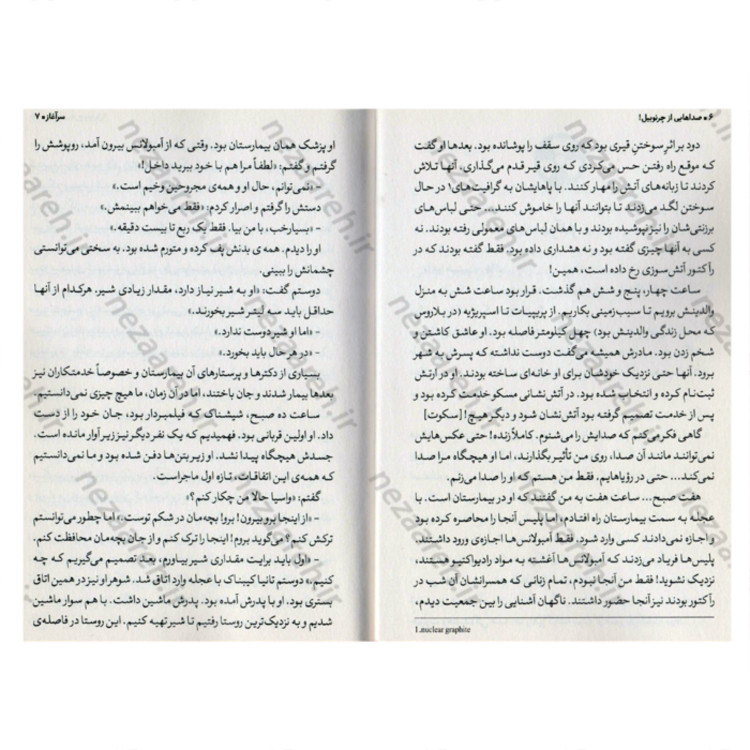 ۶ • صداهایی از چرنوبیل!
دود بر اثر سوختنِ قیری بود که روی سقف را پوشانده بود. بعدها او گفت
که موقع راه رفتن حس می‌کردی که روی قیر قدم می‌گذاری. آنها تلاش
کردند تا زبانه‌های آتش را مهار کنند. با پاهایشان به گرافیت‌های۱ در حال
سوختن لگد می‌زدند تا بتوانند آنها را خاموش کنند... حتی لباس‌های
برزنتی‌شان را نیز نپوشیده بودند و با همان لباس‌های معمولی رفته بودند. نه
کسی به آنها چیزی گفته بود و نه هشداری داده بود. فقط گفته بودند که در
رآکتور آتش‌سوزی رخ داده است، همین!
ساعت چهار، پنج و شش هم گذشت. قرار بود ساعت شش به منزل
والدینش برویم تا سیب‌زمینی بکاریم. از پریپیات تا اسپریژیه (در بلاروس
که محل زندگی والدینش بود) چهل کیلومتر فاصله بود. او عاشق کاشتن و
شخم زدن بود. مادرش همیشه می‌گفت دوست نداشته که پسرش به شهر
برود. آنها حتی نزدیک خودشان برای او خانه‌ای ساخته بودند. او در ارتش
ثبت‌نام کرده و انتخاب شده بود. در آتش‌نشانی مسکو خدمت کرده بود و
پس از خدمت تصمیم گرفته بود آتش‌نشان شود و دیگر هیچ! [سکوت]
گاهی فکر می‌کنم که صدایش را می‌شنوم. کاملاً زنده! حتی عکس‌هایش
نمی‌توانند مانند آن صدا، روی من تأثیر بگذارند. اما او هیچگاه مرا صدا
نمی‌کند... حتی در رؤیاهایم. فقط من هستم که او را صدا می‌زنم.
هفت صبح... ساعت هفت به من گفتند که او در بیمارستان است. با
عجله به سمت بیمارستان راه افتادم، اما پلیس آنجا را محاصره کرده بود
و اجازه نمی‌دادند کسی وارد شود. فقط آمبولانس‌ها اجازه‌ی ورود داشتند.
پلیس‌ها فریاد می‌زدند که آمبولانس‌ها آغشته به مواد رادیواکتیو هستند،
نزدیک نشوید! فقط من آنجا نبودم، تمام زنانی که همسرانشان آن شب در
رآکتور بودند نیز آنجا حضور داشتند. ناگهان آشنایی را بین جمعیت دیدم،
1.nuclear graphite
سرآغاز • ۷
او پزشک همان بیمارستان بود. وقتی که از آمبولانس بیرون آمد، روپوشش را
گرفتم و گفتم: «لطفاً مرا هم با خود ببرید داخل!»
- «نمی‌توانم، حال او و همه‌ی مجروحین وخیم است.»
دستش را گرفتم و اصرار کردم: «فقط می‌خواهم ببینمش.»
- «بسیارخب، با من بیا. فقط یک ربع تا بیست دقیقه.»
او را دیدم. همه ی بدنش پف کرده و متورم شده بود. به سختی می‌توانستی
چشمانش را ببینی.
دوستم گفت: «او به شیر نیاز دارد، مقدار زیادی شیر. هرکدام از آنها
حداقل باید سه لیتر شیر بخورند.»
- «اما او شیر دوست ندارد.»
- «در هر حال باید بخورد.»
بسیاری از دکترها و پرستارهای آن بیمارستان و خصوصاً خدمتکاران نیز
بعدها بیمار شدند و جان باختند، اما در آن زمان، ما هیچ چیزی نمی‌دانستیم.
ساعت ده صبح، شیشناک که فیلمبردار بود، جان خود را از دست
داد. او اولین قربانی بود. فهمیدیم که یک نفر دیگر نیز زیر آوار مانده است.
جسدش هیچگاه پیدا نشد. او زیر بتن‌ها دفن شده بود و ما نمی‌دانستیم
که همه‌ی این اتفاقات، تازه اول ماجراست.
گفتم: «واسیا حالا من چکار کنم؟»
- «از اینجا برو بیرون! برو! بچه‌مان در شکم توست.» اما چطور می‌توانستم
ترکش کنم؟ می‌گوید بروم! اینجا را ترک کنم و از جان بچه‌مان محافظت کنم.
- «اول باید برایت مقداری شیر بیاورم، بعد تصمیم می‌گیریم که چه
کنیم.» دوستم تانیا کیبناک با عجله وارد اتاق شد. شوهر او نیز در همین اتاق
بستری بود. او با پدرش آمده بود. پدرش ماشین داشت. با هم سوار ماشین
شدیم و به نزدیک‌ترین روستا رفتیم تا شیر تهیه کنیم. این روستا در فاصله‌ی